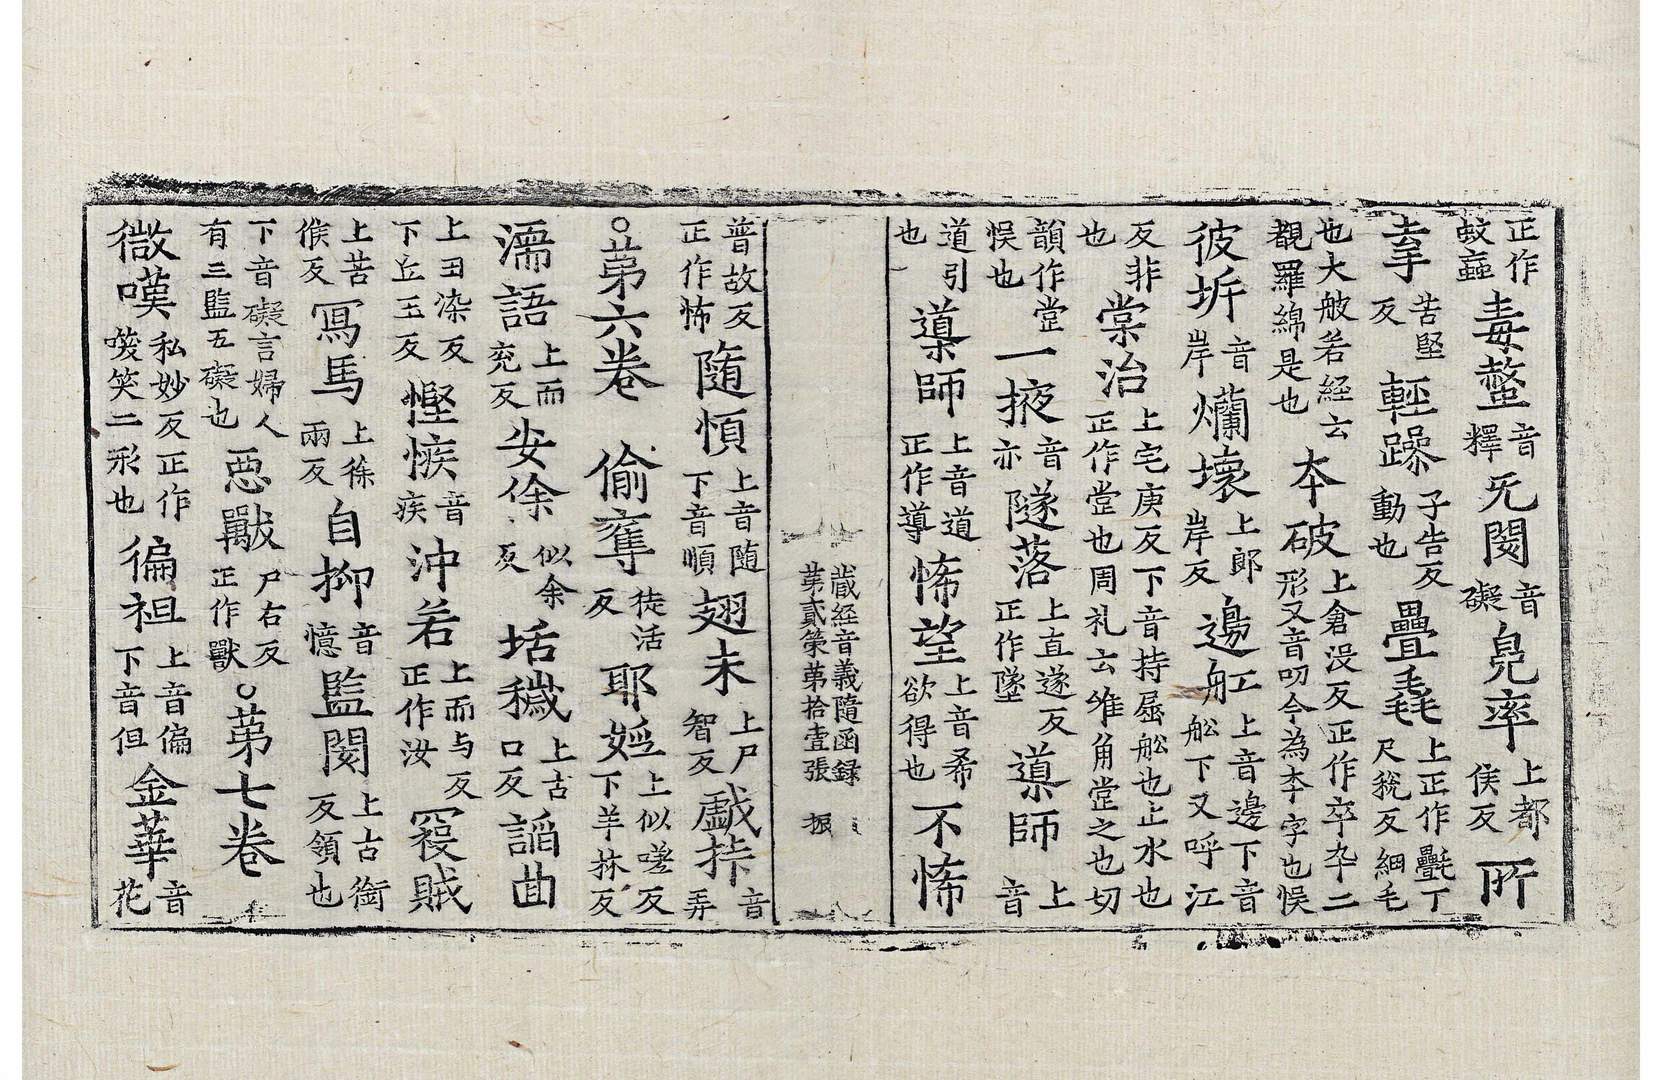 正作蚊蝱毒螫音釋旡閡音礙皃率上都侯反所
掔苦堅反輕躁子告反動也疊毳上正作㲲丁尺稅反細毛
也大般若經云覩羅綿是也本破上倉没反正作卒卆二形又音叨今為本字也悮
彼坼音岸爛壞上郎岸反邊舡上音邊下音舩下又呼江
反非也棠治上宅庚反下音持屈舩也止水也正作堂也周礼云維角堂之也切
韻作堂悮也一掖音亦隧落上直遂反正作墜導師上音
道引也導師上音道正作導悕望上音希欲得也不悕
藏經音義隨函録第貳筞第拾壹張 振
普故反正作怖随愩上音随下音順翅未上尸智反戱挵音弄
○第六卷 偷奪徒活反耶婬上似嗟反下羊林反
濡語上而兖反安徐似余反垢穢上古口反諂曲
上丑染反下丘玉反慳㤪音疾沖若上而与反正作汝寇賊
上苦候反冩馬上徐兩反自抑音憶監閡上古銜反領也
下音礙言婦人有三監五礙也惡獸尸右反正作獸○第七卷
㣲嘆私妙反正作㗛笑二形也徧袒上音徧下音但金華音花